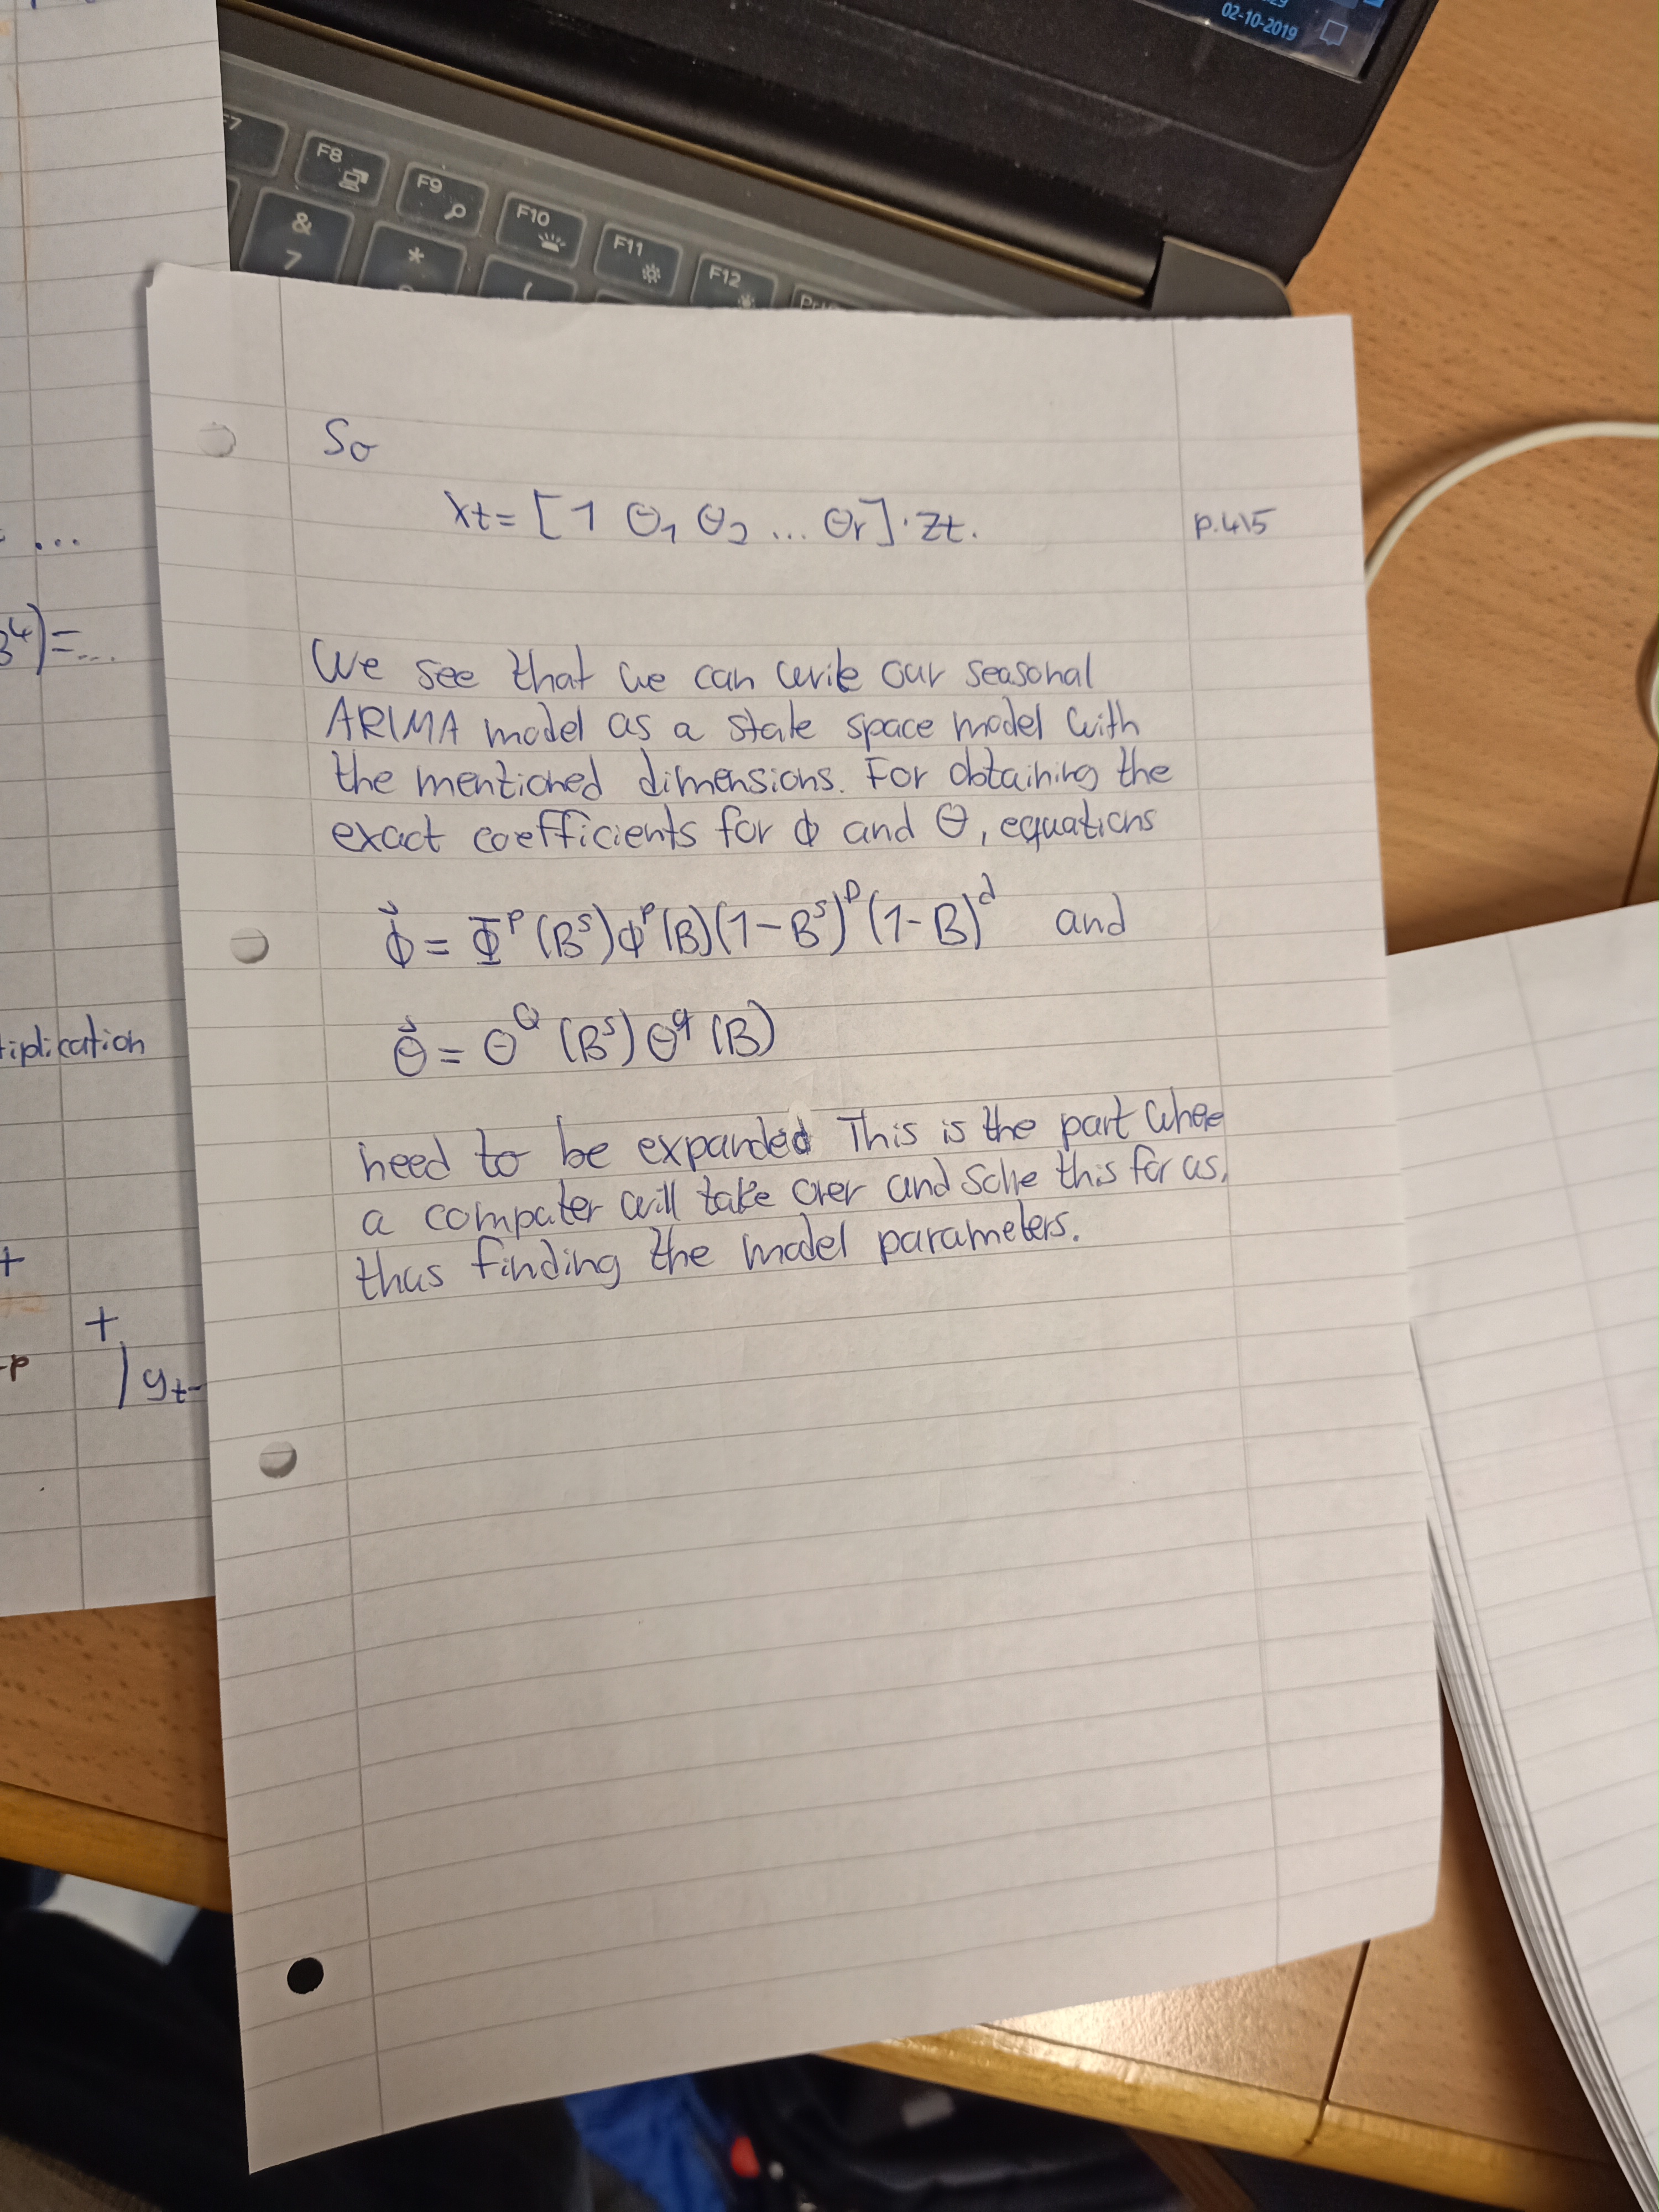 02-10-2019
F7
F8
F9
F10
F11
F12
&
7
*
(
So
Xt = [1 Θ₁ Θ₂ ... Θr] · Zt.
p.415
We see that we can write our seasonal
ARIMA model as a state space model with
the mentioned dimensions. For obtaining the
exact coefficients for ϕ and Θ, equations
ϕ⃗ = Φᴾ (Bˢ) ϕᵖ (B) (1-Bˢ)ᴰ (1-B)ᵈ and
Θ⃗ = Θ^Q (Bˢ) Θ^q (B)
need to be expanded This is the part where
a computer will take over and solve this for us,
thus finding the model parameters.
...
B⁴)=...
tiplication
+
+
-p
| yt-